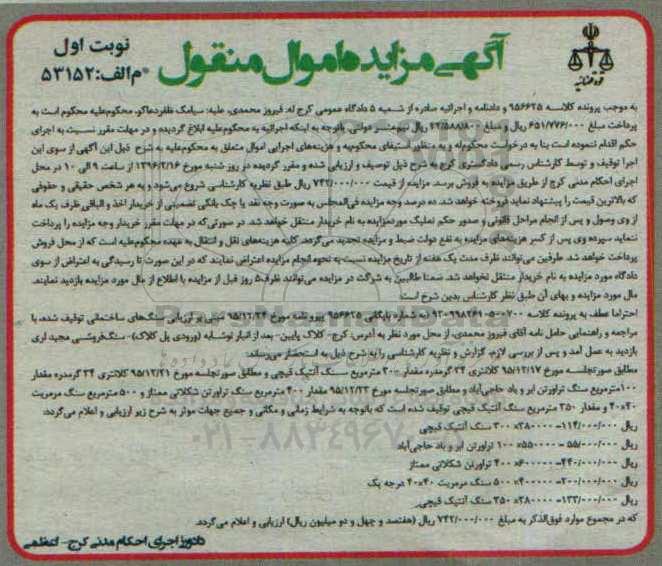 آگهی مزایده اموال منقول
نوبت اول
*م الف: ۵۳۱۵۲
قوه قضائیه
به موجب پرونده کلاسه ۹۵۶۶۲۵ و دادنامه و اجرائیه صادره از شعبه ۵ دادگاه عمومی کرج له: فیروز محمدی، علیه: سیامک ظفردماکو، محکوم‌علیه محکوم است به
پرداخت مبلغ ۶۵۱/۷۷۶/۰۰۰ ریال و مبلغ ریال نیم‌عشر دولتی. باتوجه به اینکه اجرائیه به محکوم‌علیه ابلاغ گردیده و در مهلت مقرر نسبت به اجرای
حکم اقدام ننموده است بنا به درخواست محکوم‌له و به منظور استیفای محکوم‌به و هزینه‌های اجرایی اموال متعلق به محکوم‌علیه به شرح ذیل این آگهی از سوی این
اجرا توقیف و توسط کارشناس رسمی دادگستری کرج به شرح ذیل توصیف و ارزیابی شده و مقرر گردیده در روز شنبه مورخ ۱۳۹۶/۲/۱۶ از ساعت ۹ الی ۱۰ در محل
اجرای احکام مدنی کرج از طریق مزایده به فروش برسد. مزایده از قیمت ۷۴۲/۰۰۰/۰۰۰ ریال طبق نظریه کارشناسی شروع می‌شود و به هر شخص حقیقی و حقوقی
که بالاترین قیمت را پیشنهاد نماید فروخته خواهد شد. ده درصد وجه مزایده فی‌المجلس به صورت وجه نقد یا چک بانکی تضمینی از خریدار اخذ و الباقی ظرف یک ماه
از وی وصول و پس از انجام مراحل قانونی و صدور حکم تملیک مورد مزایده به نام خریدار منتقل خواهد شد. در صورتی که در مهلت مقرر خریدار وجه مزایده را پرداخت
ننماید سپرده وی پس از کسر هزینه‌های مزایده به نفع دولت ضبط و مزایده تجدید می‌گردد. کلیه هزینه‌های نقل و انتقال به عهده محکوم‌علیه است که از محل فروش
پرداخت خواهد شد. طرفین می‌توانند ظرف مدت یک هفته از تاریخ مزایده نسبت به نحوه انجام مزایده اعتراض نمایند که در این صورت تا رسیدگی به اعتراض از سوی
دادگاه مورد مزایده به نام خریدار منتقل نخواهد شد. ضمنا طالبین به شرکت در مزایده می‌توانند ظرف ۵ روز قبل از مزایده با اطلاع از مال مورد مزایده بازدید نمایند.
مال مورد مزایده و بهای آن طبق نظر کارشناس بدین شرح است:
احتراما عطف به پرونده کلاسه ۹۳۰۹۹۸۲۶۱۰۵۰۰۷۰۰ (به شماره بایگانی ۹۵۶۶۲۵) پیرو نامه مورخ ۹۵/۱۲/۲۴ مبنی بر ارزیابی سنگ‌های ساختمانی توقیف شده، با
مراجعه و راهنمایی حامل نامه آقای فیروز محمدی، از محل مورد نظر به آدرس: کرج- کلاک پایین- بعد از انبار نوشابه (ورودی پل کلاک)- سنگ‌فروشی مجید لری
بازدید به عمل آمد و پس از بررسی لازم، گزارش و نظریه کارشناسی را به شرح ذیل به استحضار می‌رساند:
مطابق صورتجلسه مورخ ۹۵/۱۲/۱۷ کلانتری ۲۴ گرمدره مقدار ۳۰۰ مترمربع سنگ آنتیک قیچی و مطابق صورتجلسه مورخ ۹۵/۱۲/۲۱ کلانتری ۲۴ گرمدره مقدار
۱۰۰ مترمربع سنگ تراورتن ابر و باد حاجی‌آباد و مطابق صورتجلسه مورخ ۹۵/۱۲/۲۳ مقدار ۴۰۰ مترمربع سنگ تراورتن شکلاتی ممتاز و ۵۰۰ مترمربع سنگ مرمریت
۴۰×۴۰ و مقدار ۳۵۰ مترمربع سنگ آنتیک قیچی توقیف شده است که باتوجه به شرایط زمانی و مکانی و جمیع جهات موثر به شرح زیر ارزیابی و اعلام می‌گردد:
ریال ۱۱۴/۰۰۰/۰۰۰=۳۸۰۰۰۰× ۳۰۰ سنگ آنتیک قیچی
ریال ۵۵/۰۰۰/۰۰۰=۵۵۰۰۰۰× ۱۰۰ تراورتن ابر و باد حاجی‌آباد
ریال ۲۴۰/۰۰۰/۰۰۰=۶۰۰۰۰۰× ۴۰۰ تراورتن شکلاتی ممتاز
ریال ۲۰۰/۰۰۰/۰۰۰=۴۰۰۰۰۰× ۵۰۰ سنگ مرمریت ۴۰×۴۰ درجه یک
ریال ۱۳۳/۰۰۰/۰۰۰=۳۸۰۰۰۰× ۳۵۰ سنگ آنتیک قیچی
که در مجموع موارد فوق‌الذکر به مبلغ ۷۴۲/۰۰۰/۰۰۰ ریال (هفتصد و چهل و دو میلیون ریال) ارزیابی و اعلام می‌گردد.
دادورز اجرای احکام مدنی کرج- اعظمی
۰۲۱-۸۸۳۴۹۶۷۰